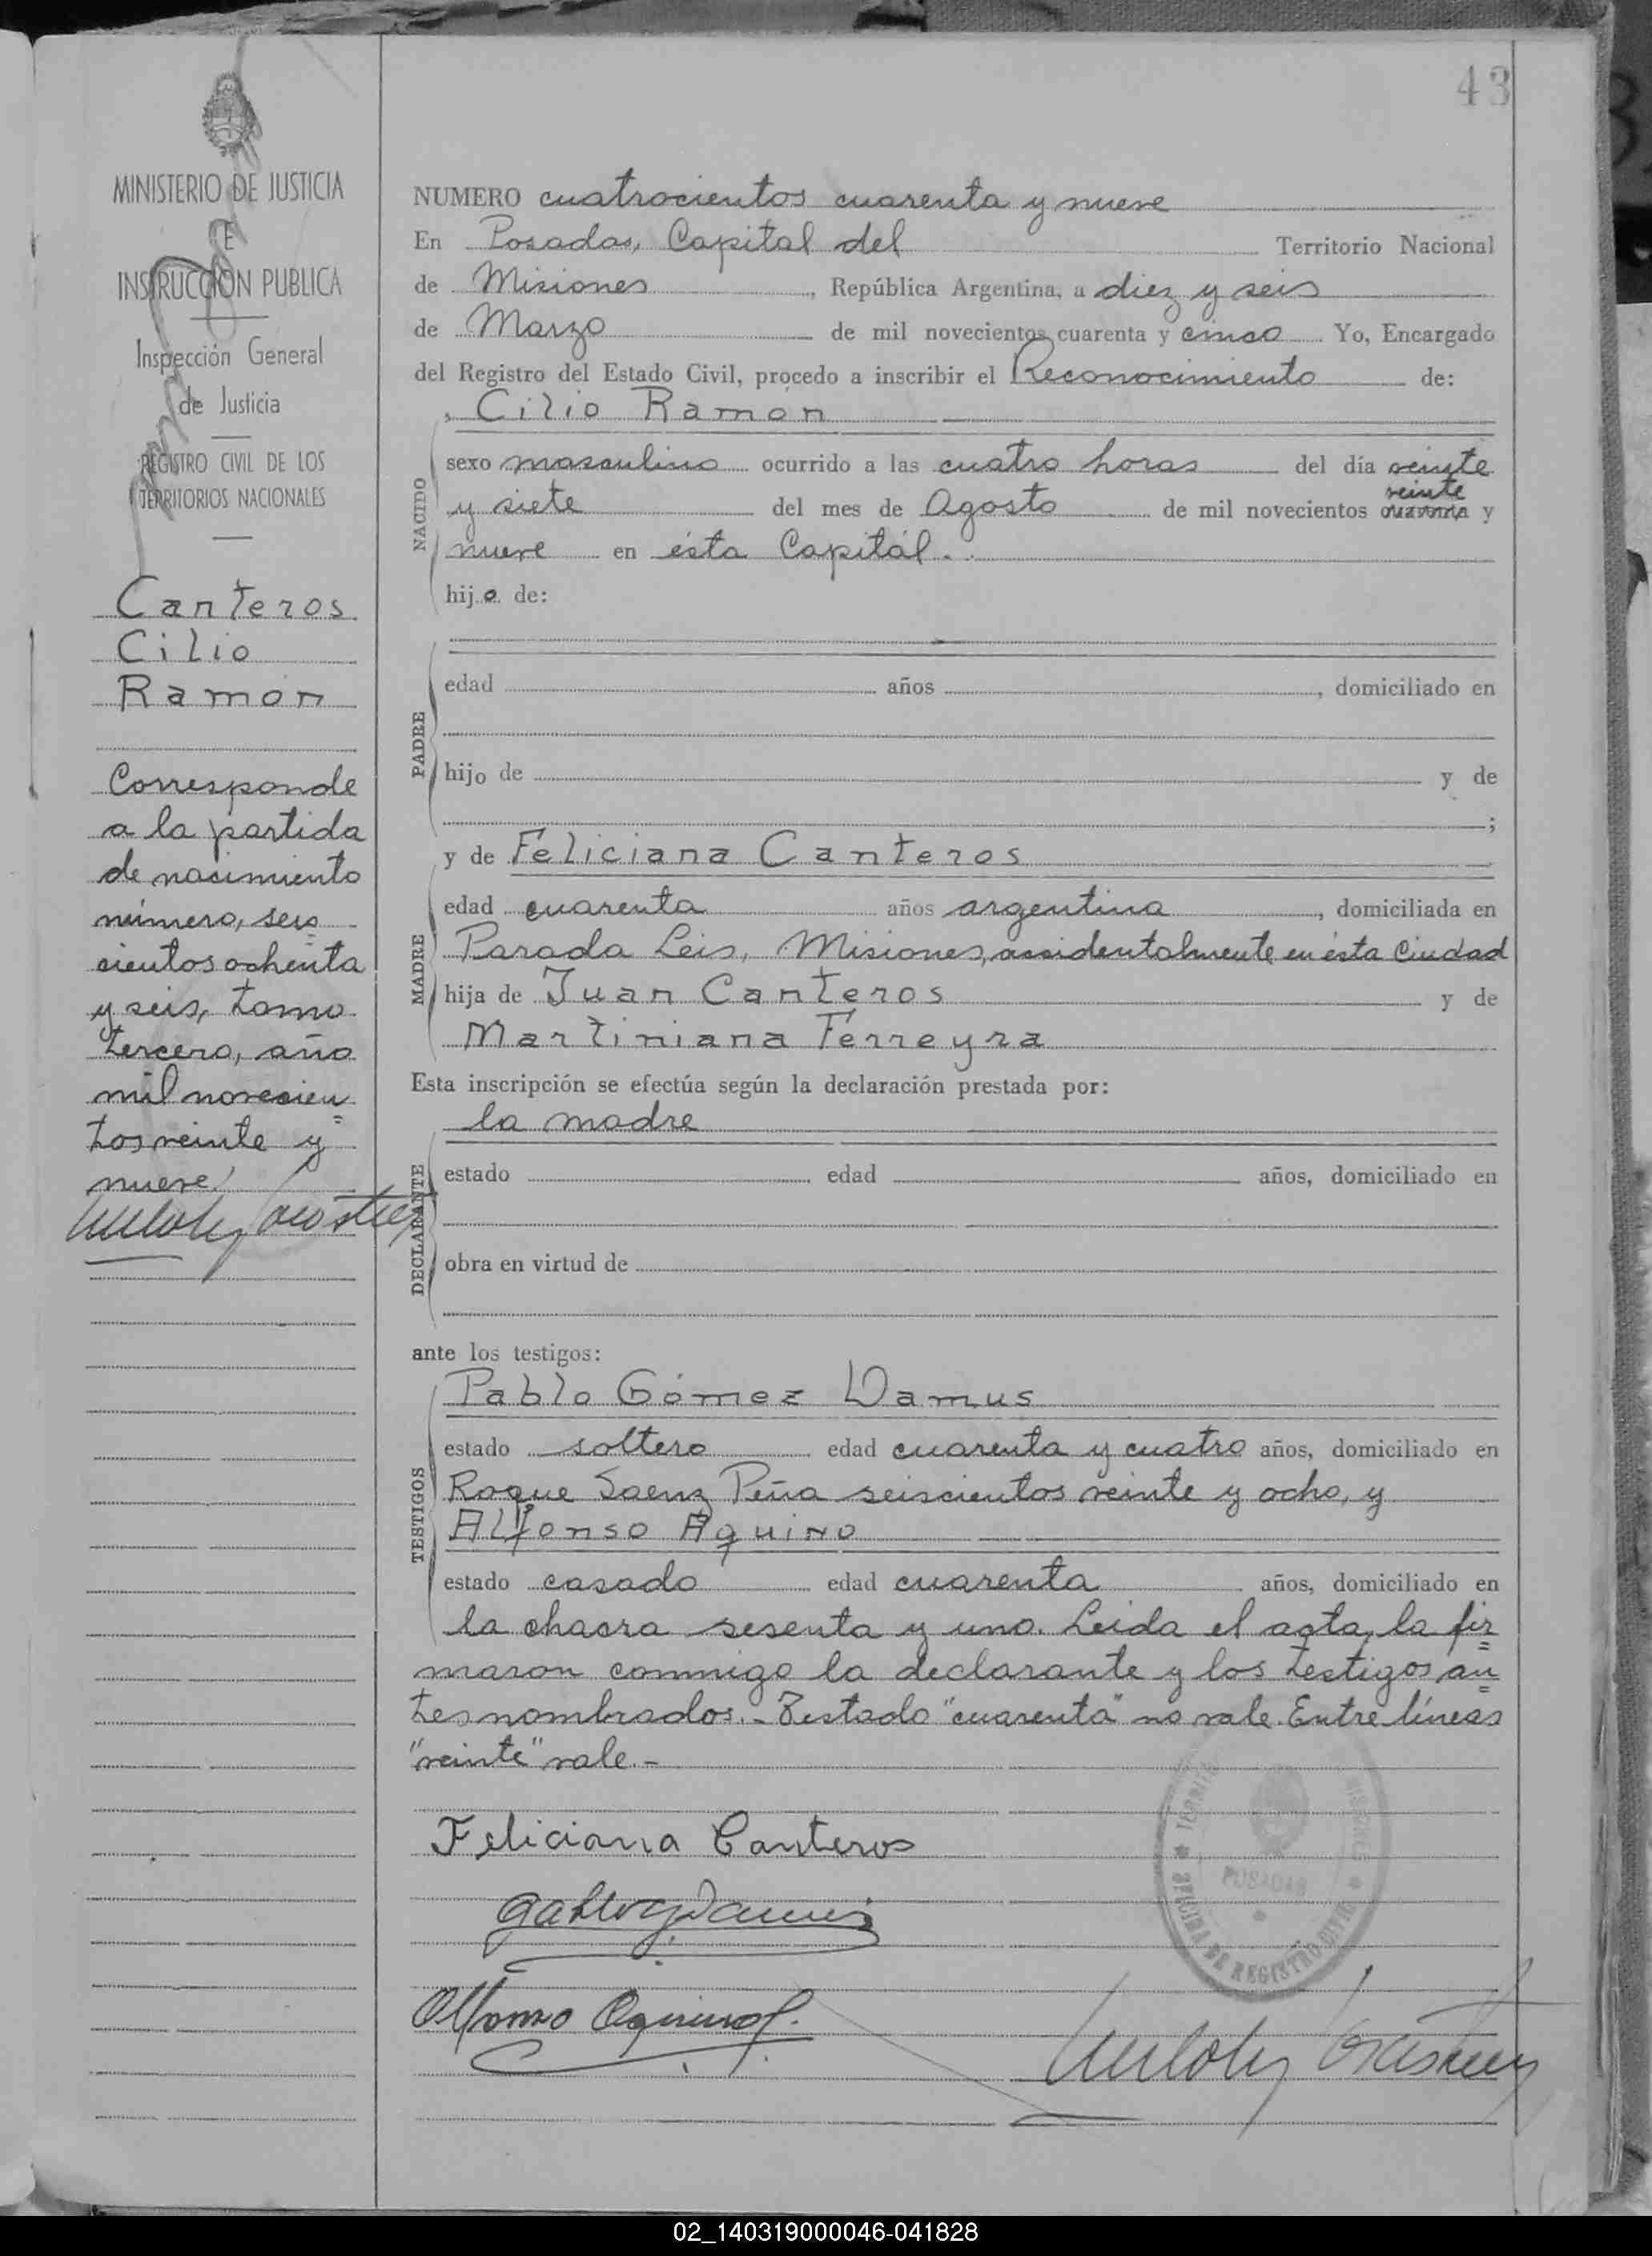 43
MINISTERIO DE JUSTICIA
E
INSTRUCCION PUBLICA
Inspección General
de Justicia
REGISTRO CIVIL DE LOS
TERRITORIOS NACIONALES
Canteros
Cilio
Ramón
Corresponde
a la partida
de nacimiento
número, seis
cientos ochenta
y seis, tomo
tercero, año
mil novecien
tos veinte y
nueve
NUMERO cuatrocientos cuarenta y nueve
En Posadas, Capital del Territorio Nacional
de Misiones, República Argentina, a diez y seis
de Marzo de mil novecientos cuarenta y cinco Yo, Encargado
del Registro del Estado Civil, procedo a inscribir el Reconocimiento de:
Cilio Ramón
NACIDO
sexo masculino ocurrido a las cuatro horas del día veinte
veinte
y siete del mes de Agosto de mil novecientos cuarenta y
nueve en ésta Capital.
hijo de:
PADRE
edad años , domiciliado en
hijo de y de
;
y de Feliciana Canteros
MADRE
edad cuarenta años argentina, domiciliada en
Parada Leis, Misiones, assidentalmente en ésta Ciudad
hija de Juan Canteros y de
Martiniana Ferreyra
Esta inscripción se efectúa según la declaración prestada por:
la madre
DECLARANTE
estado edad años, domiciliado en
obra en virtud de
ante los testigos:
TESTIGOS
Pablo Gómez Damus
estado soltero edad cuarenta y cuatro años, domiciliado en
Roque Saenz Peña seiscientos veinte y ocho, y
Alfonso Aquino
estado casado edad cuarenta años, domiciliado en
la chacra sesenta y uno. Leida el acta, la fir
maron conmigo la declarante y los testigos an
tes nombrados.- Testado "cuarenta" no vale. Entre líneas
"veinte" vale.-
Feliciana Canteros
Alfonso Aquino
POSADAS
OFICINA DE REGISTRO CIVIL
02_140319000046-041828